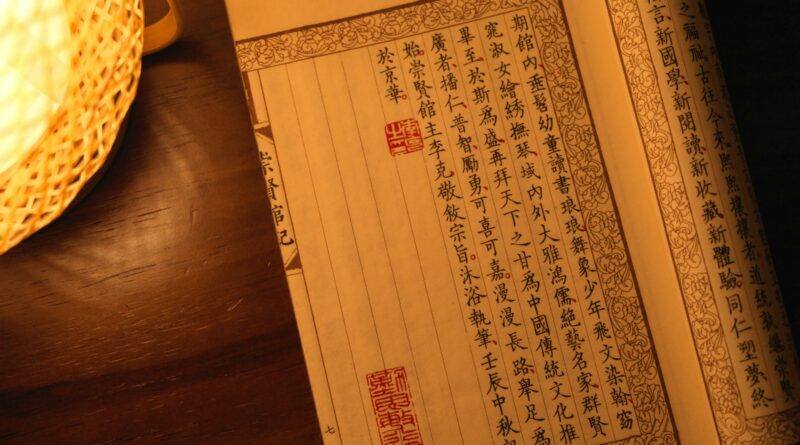 之福祉古往今來熙熙攘攘者道統續崇賢
言新國學新閱讀新收藏新體驗同仁塑夢終
期館內垂髫幼童讀書琅琅舞象少年飛文染翰窈
窕淑女繪綉撫琴域內外大雅鴻儒絕藝名家群賢
畢至於斯爲盛再拜天下之甘爲中國傳統文化推
廣者播仁普智勵勇可喜可嘉漫漫長路舉足爲
始崇賢館主李克敬敘宗旨沐浴執筆壬辰中秋
於京華
崇賢館記
七